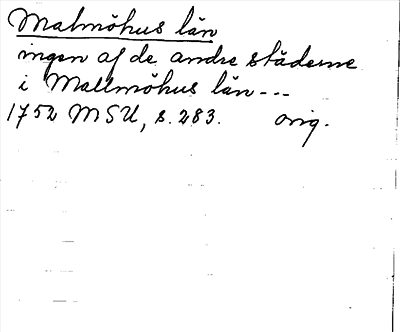 Malmöhus län
ingen af de andre städerne
i Mallmöhus län ---
1752 MSU, s. 283. orig.